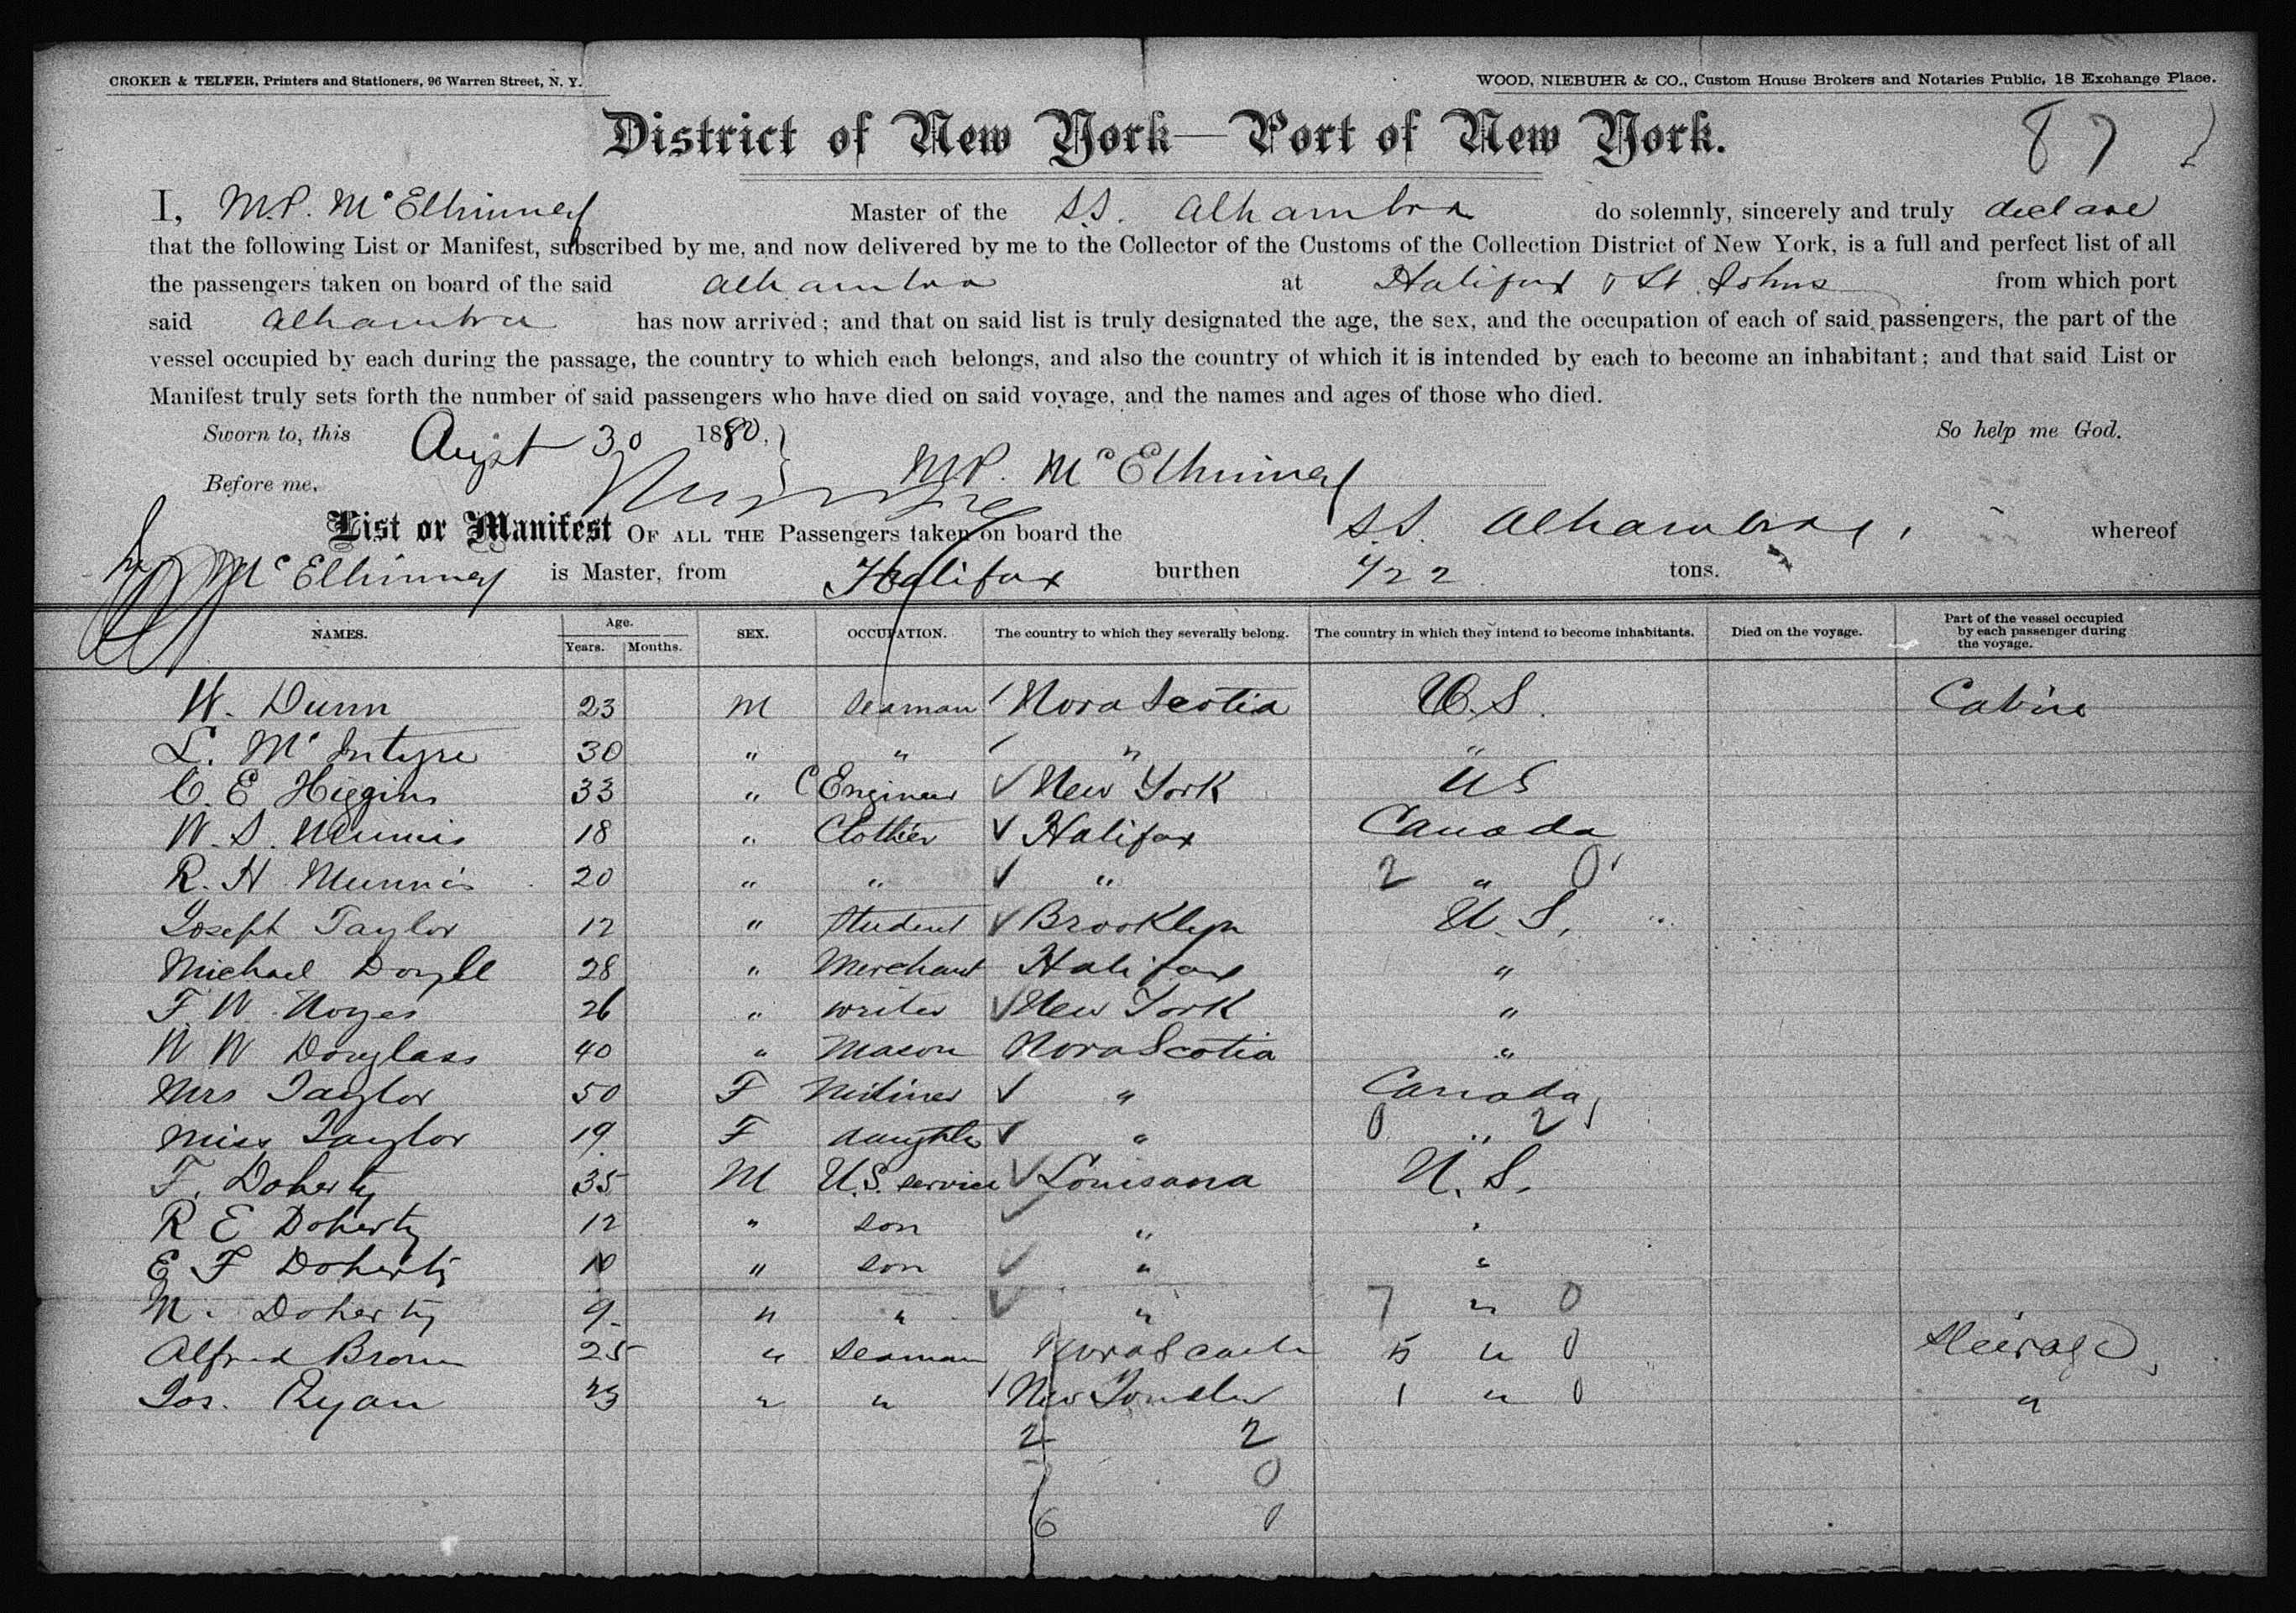 CROKER & TELFER, Printers and Stationers, 96 Warren Street, N. Y. WOOD, NIEBUHR & CO., Custom House Brokers and Notaries Public, 18 Exchange Place.
District of New York—Port of New York. 87
I, M.P. McElhinney Master of the S.S. Alhambra do solemnly, sincerely and truly declare
that the following List or Manifest, subscribed by me, and now delivered by me to the Collector of the Customs of the Collection District of New York, is a full and perfect list of all
the passengers taken on board of the said Alhambra at Halifax & St. Johns from which port
said Alhambra has now arrived; and that on said list is truly designated the age, the sex, and the occupation of each of said passengers, the part of the
vessel occupied by each during the passage, the country to which each belongs, and also the country of which it is intended by each to become an inhabitant; and that said List or
Manifest truly sets forth the number of said passengers who have died on said voyage, and the names and ages of those who died.
Sworn to, this Augst 30 1880, So help me God.
Before me, M.P. McElhinney
List or Manifest OF ALL THE Passengers taken on board the S.S. Alhambra, whereof
McElhinney is Master, from Halifax burthen tons.
NAMES. Age. Years. Months. SEX. OCCUPATION. The country to which they severally belong. The country in which they intend to become inhabitants. Died on the voyage. Part of the vessel occupied by each passenger during the voyage.
W. Dunn 23 M seaman Nova Scotia U.S. Cabin
L. McIntyre 30 " " " "
C. E Higgins 33 " C Engineer New York US
W. S. 18 " Clothier Halifax Canada
R. H Munnis 20 " " " 2 " 0
Joseph Taylor 12 " Student Brooklyn U.S.
Michael Doyle 28 " Merchant Halifax "
F. W. Noyes 26 " writer New York "
W W Douglass 40 " Mason Nova Scotia "
Mrs Taylor 50 F Miliner " Canada
Miss Taylor 19 F daughter " 0 " 2
F. Doherty 35 M U.S. service Louisana U.S.
R E Doherty 12 " son " "
E F Doherty 10 " son " "
N. Doherty 9 " " " 7 " 0
Alfred Brown 25 " seaman Nova Scotia 5 " 0 Steerage
Jos. Ryan 23 " " 1 " 0 "
2 2
0
6 0